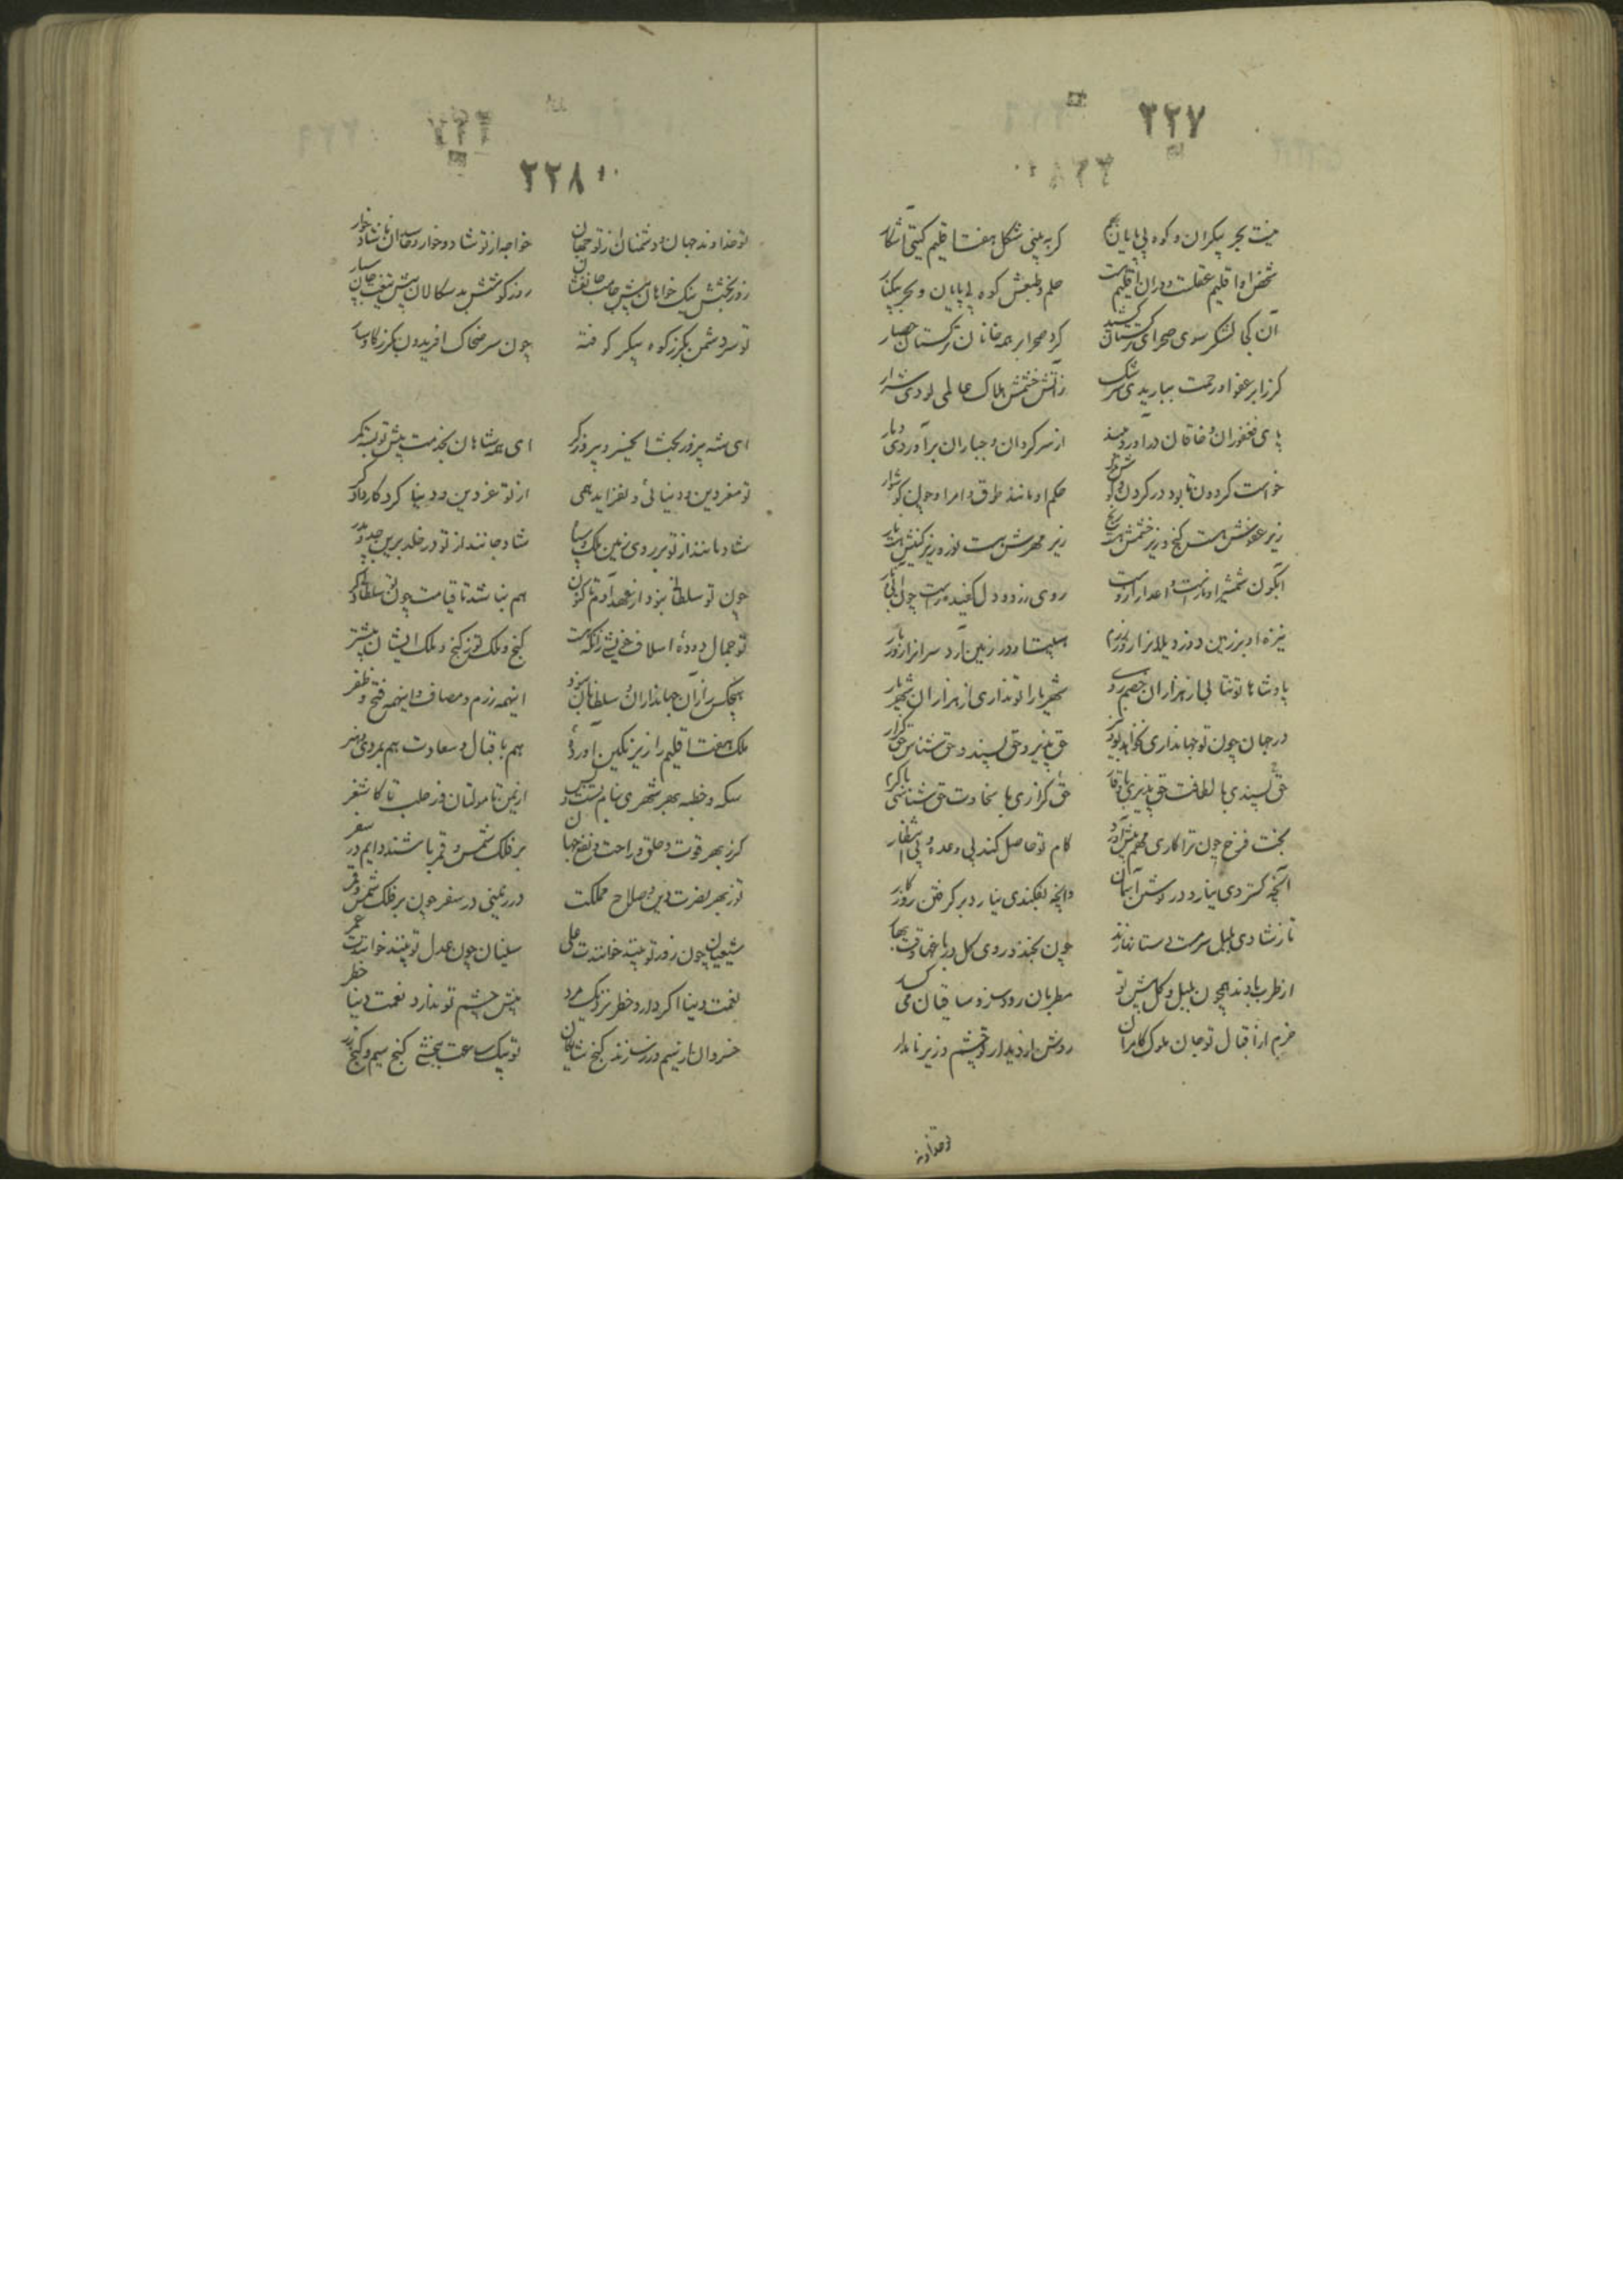 ۲۲۷
نیست بحر بیکران و کوه بی پایان گر به بینی شکل هفت اقلیم گیتی آشکار
شخص او اقلیم عقلست و دران اقلیم هست حلم و طبعش کوه بی پایان و بحر بیکنار
آن کجا لشکر سوی صحرای ترکستان کشید کرد صحرا بر همه خانان ترکستان حصار
کر ز ابر عفو او رحمت نباریدی سرشک زآتش خشمش هلاک عالمی بودی شرار
پای فغفوران و خاقانان در آوردی به بند از سر گردان و جباران برآوردی دمار
خواست گردون تا بود در گردن و گوش حکم او مانند طوق و امر او چون گوشوار
زیر عفوش هست گنج و زیر خشمش هست رنج زیر مهرش هست نور و زیر کینش هست نار
آبگون شمشیر او نارست و اعدا را ازوست روی زرد و دل کفیده راست چون آبی و نار
نیزه او بر زمین دوزد یلان را روز رزم
پادشاها تو نتابی از هزاران خصم روی شهریارا تو نداری از هزاران شهریار
در جهان چون تو جهانداری نخواهد بود نیز حق پذیر و حق پسند و حق شناس و حق گزار
حق پسندی با لطافت حق پذیری با وقار حق گزاری با سخاوت حق شناسی
بخت فرخ چون ترا کاری مهم پیش آورد کام تو حاصل کند بی وعده و بی انتظار
آنچه گستردی نیارد در نوشتن آسمان وانچه افکندی نیارد بر گرفتن روزگار
تا ز شادی بلبل سرمست دستانها زند چون بخندد روی گل در باغ وقت بهار
از طرب بادند همچون بلبل و گل پیش تو مطربان رودساز و ساقیان می گسار
خرم از اقبال تو جان ملوک کامران روشن از دیدار تو چشم وزیر نامدار
تو خداوند
۲۲۸
تو خداوند جهان و دشمنان از تو جهان خواجه از تو شاد و خوار و حاسدان ناشاد خوار
روز بخشش نیک خواهان پیش جانفشان روز کوشش بدسگالان پیش تیغت جان سپار
تو سر دشمن بگرز کوه پیکر کوفته چون سر ضحاک افریدون بگرز گاوسار
ای شه پیروز بخت ای خسرو پیروزگر ای همه شاهان بخدمت پیش تو بسته کمر
تو معز دین و دنیائی و بفزاید همی از تو عز دین و دنیا کردگار دادگر
شادمانند از تو بر روی زمین ملک و سپاه شاد جانند از تو در خلد برین جد و پدر
چون تو سلطانی نبود از عهد آدم تاکنون هم نباشد تا قیامت چون تو سلطانی دگر
تو جمال دوده اسلاف خویشی زانکه هست گنج و ملک تو ز گنج و ملک ایشان بیشتر
هیچکس را از آن جهانداران و سلطانان نبود اینهمه رزم و مصاف و اینهمه فتح و ظفر
ملک هفت اقلیم را زیر نگین آوردۀ هم باقبال و سعادت هم بمردی و هنر
سکه و خطبه بهر شهری بنام تست و بس از یمن تا مولتان و ز حلب تا کاشغر
کر ز بهر قوت و خلق و راحت و نفع جهان بر فلک شمس و قمر باشند دایم در سفر
تو ز بهر نصرت دین و صلاح مملکت در زمینی در سفر چون بر فلک شمس و قمر
شیعیان چون زور تو بینند خوانندت علی سنیان چون عدل تو بینند خوانندت عمر
نعمت دنیا اگر دارد خطر نزدیک مرد پیش چشم تو ندارد نعمت دنیا خطر
خسروان از سیم و زر سازند گنج شایگان تو بیک ساعت ببخشی گنج سیم و گنج زر